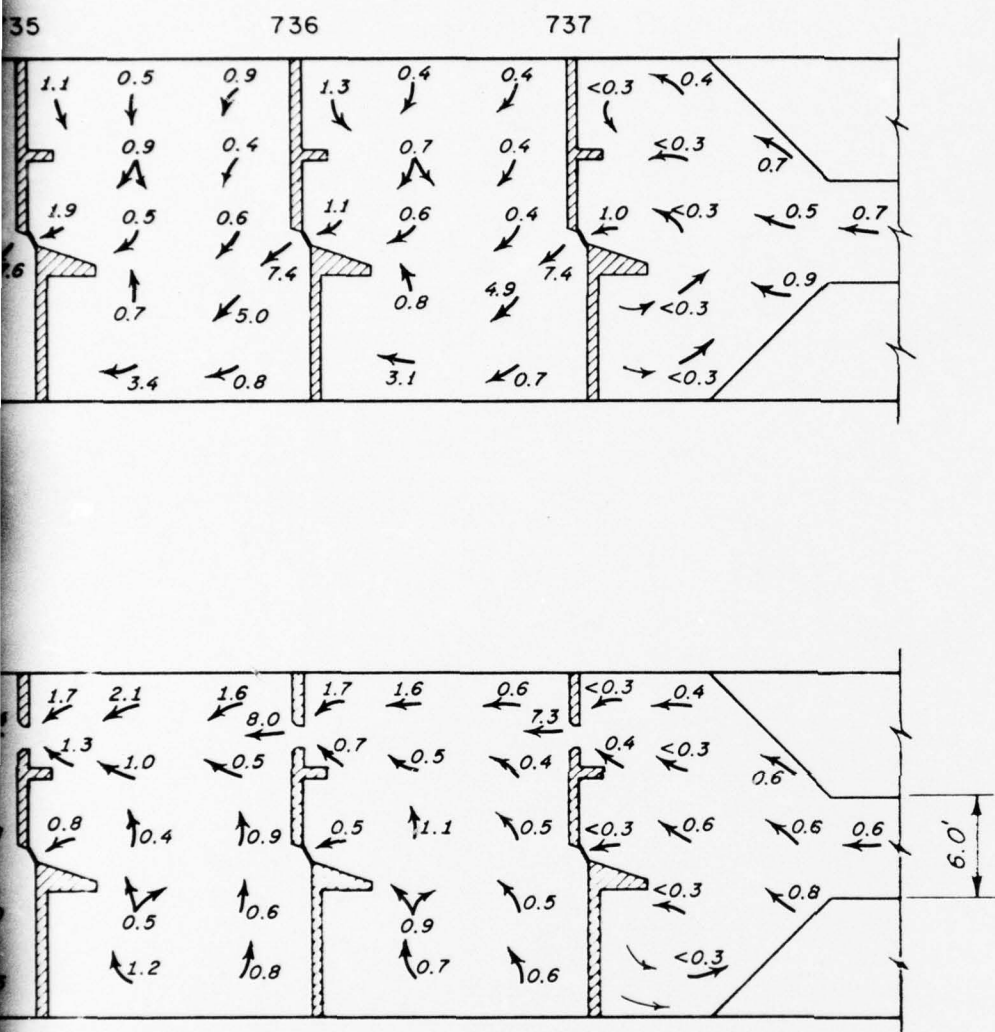 35 736 737
1.1 0.5 0.9 1.3 0.4 0.4 <0.3 0.4
0.9 0.4 0.7 0.4 <0.3 0.7
1.9 0.5 0.6 1.1 0.6 0.4 1.0 <0.3 0.5 0.7
7.6 7.4 7.4
0.7 5.0 0.8 4.9 <0.3 0.9
3.4 0.8 3.1 0.7 <0.3
1.7 2.1 1.6 1.7 1.6 0.6 <0.3 0.4
8.0 7.3
1.3 1.0 0.5 0.7 0.5 0.4 0.4 <0.3 0.6
0.8 0.4 0.9 0.5 1.1 0.5 <0.3 0.6 0.6 0.6 6.0'
0.5 0.6 0.9 0.5 <0.3 0.8
1.2 0.8 0.7 0.6 <0.3